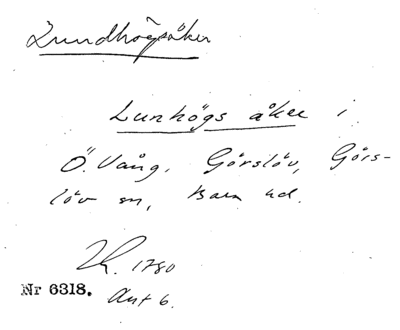 Lundhögsåker
Lunhögs åker i
Ö. Vång, Görslöv, Görs-
löv sn, Bara hd.
1780
Nr 6318. Akt 6.